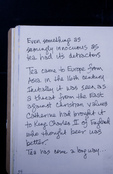 Even something as
seemingly innocuous as
tea had its detractors.
Tea came to Europe from
Asia in the 16th century
Initially it was seen as
a threat from the East
against Christian values
Catherine had brought it
to King Charles II of England
who thought beer was
better.
Tea has come a long way...